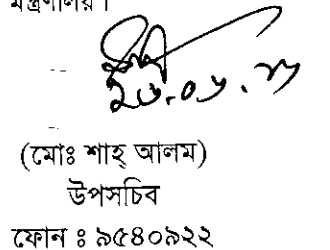 মন্ত্রণালয়।
(মোঃ শাহ্ আলম)
উপসচিব
ফোন ঃ ৯৫৪০৯২২